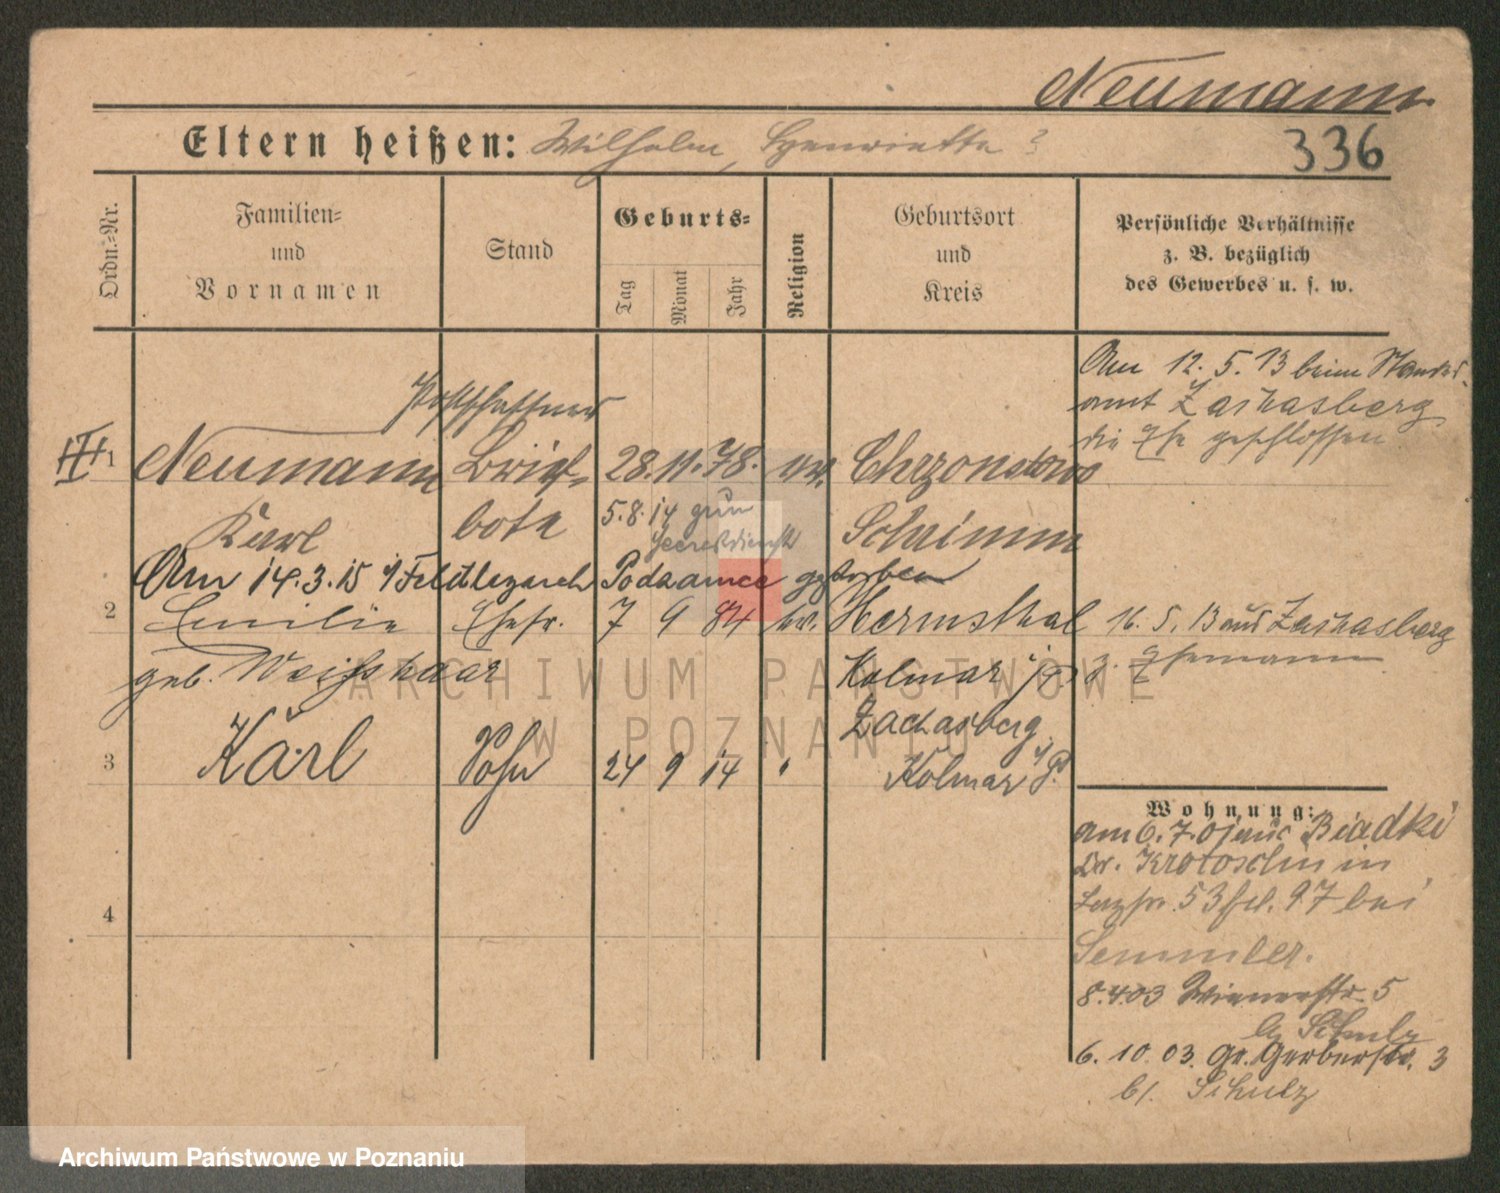 Neumann
336
Eltern heißen: Wilhelm, Henriette ?
Ordn.=Nr.
Familien=
und
Vornamen
Stand
Geburts=
Tag
Monat
Jahr
Religion
Geburtsort
und
Kreis
Persönliche Verhältnisse
z. B. bezüglich
des Gewerbes u. s. w.
Am 12. 5. 13 beim Standes-
amt Zachasberg
die Ehe geschlossen
Postschaffner
III
1 Neumann Brief- 28. 11. 78. ev. Chrzonstowo
Karl bote 5.8.14 zum Schrimm
Heeresdienst
Am 14.3.15 i/ Feldlazareth Podzamce gestorben
2 Emilie Ehefr. 7 9 84 ev. Hermsthal 16. 5. 13 aus Zachasberg
geb. Weisshaar Kolmar i/P z. Ehemann
Zachasberg
3 Karl Sohn 24 9 14 " Kolmar i/P.
4
Wohnung:
am 6. 7. 01 aus Biadki
Kr. Krotoschin in
53 97 bei
Semmler.
8.4.03 Wienerstr. 5
b/ Schulz
6. 10. 03. Gr. Gerberstr. 3
b/. Schulz
ARCHIWUM PAŃSTWOWE
W POZNANIU
Archiwum Państwowe w Poznaniu